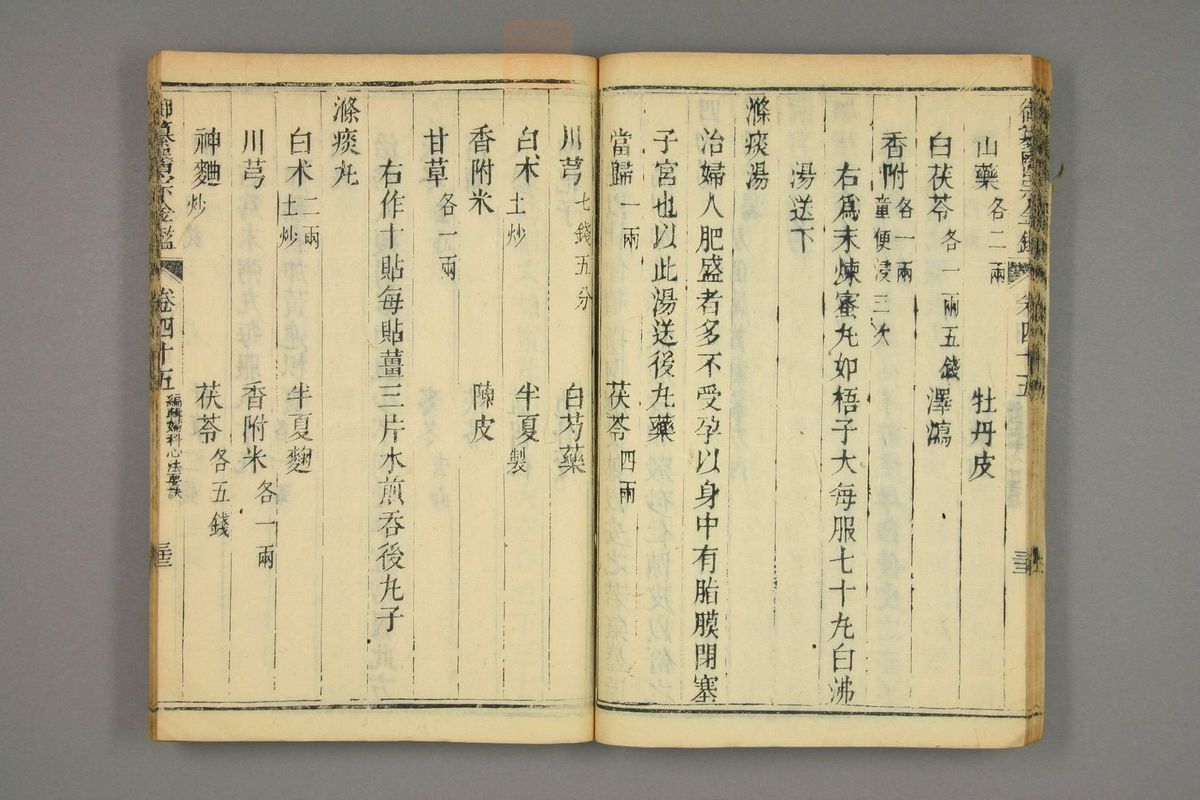 御纂醫宗金鑑 卷四十五
山藥各二兩 牡丹皮
白茯苓各一兩五錢 澤瀉
香附各一兩童便浸三次
右爲末煉蜜丸如梧子大每服七十丸白沸
湯送下
滌痰湯
治婦人肥盛者多不受孕以身中有脂膜閉塞
子宮也以此湯送後丸藥
當歸一兩 茯苓四兩
川芎七錢五分 白芍藥
白术土炒 半夏製
香附米 陳皮
甘草各一兩
右作十貼每貼薑三片水煎吞後丸子
滌痰丸
白术二兩土炒 半夏麴
川芎 香附米各一兩
神麯炒 茯苓各五錢
御纂醫宗金鑑 卷四十五 編輯婦科心法要訣